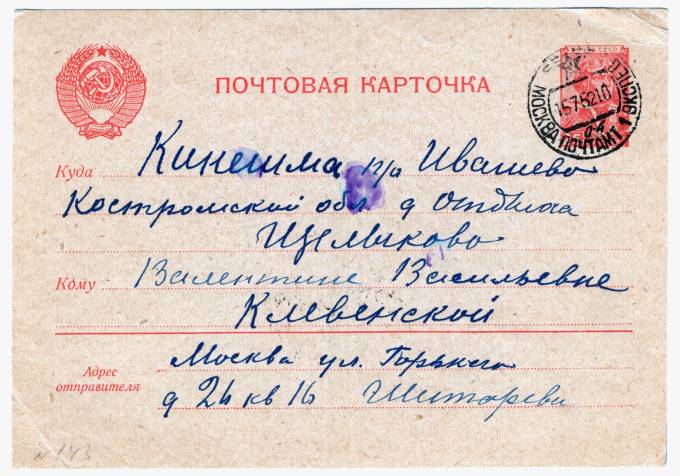 ПОЧТОВАЯ КАРТОЧКА
МОСКВА ПОЧТАМТ 1 ЭКСПЕД.
1575210
Куда Кинешма п/о Ивашево
Костромской обл д отдыха
Щелыково
Кому Валентине Васильевне
Клевенской
Адрес отправителя
Москва ул. Горького
д 24 кв 16
N 143